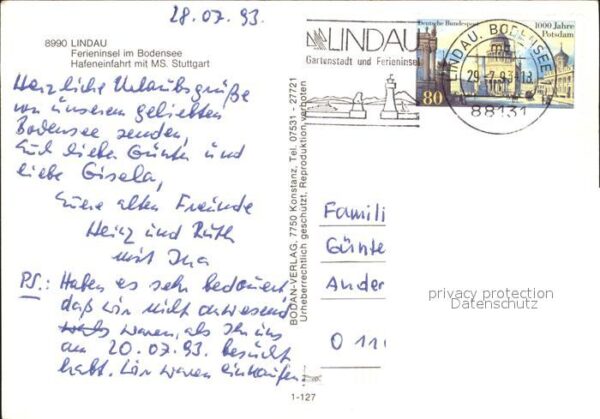 28.07.93.
8990 LINDAU
Ferieninsel im Bodensee
Hafeneinfahrt mit MS. Stuttgart
Herzliche Urlaubsgrüße
von unserem geliebten
Bodensee senden,
Euch lieber Günter und
liebe Gisela,
Eure alten Freunde
Heinz und Ruth
mit Ina
PS.: Haben es sehr bedauert,
daß wir nicht anwesend
waren, als Ihr uns
am 20.07.93. besucht
habt. Wir waren einkaufen
BODAN-VERLAG, 7750 Konstanz, Tel. 07531 - 27721
Urheberrechtlich geschützt, Reproduktion verboten
1-127
LINDAU
Gartenstadt und Ferieninsel
Deutsche Bundespost
1000 Jahre
Potsdam
80
LINDAU, BODENSEE
29.-7.93-13
88131
Famili
Günte
Ander
O 11
privacy protection
Datenschutz